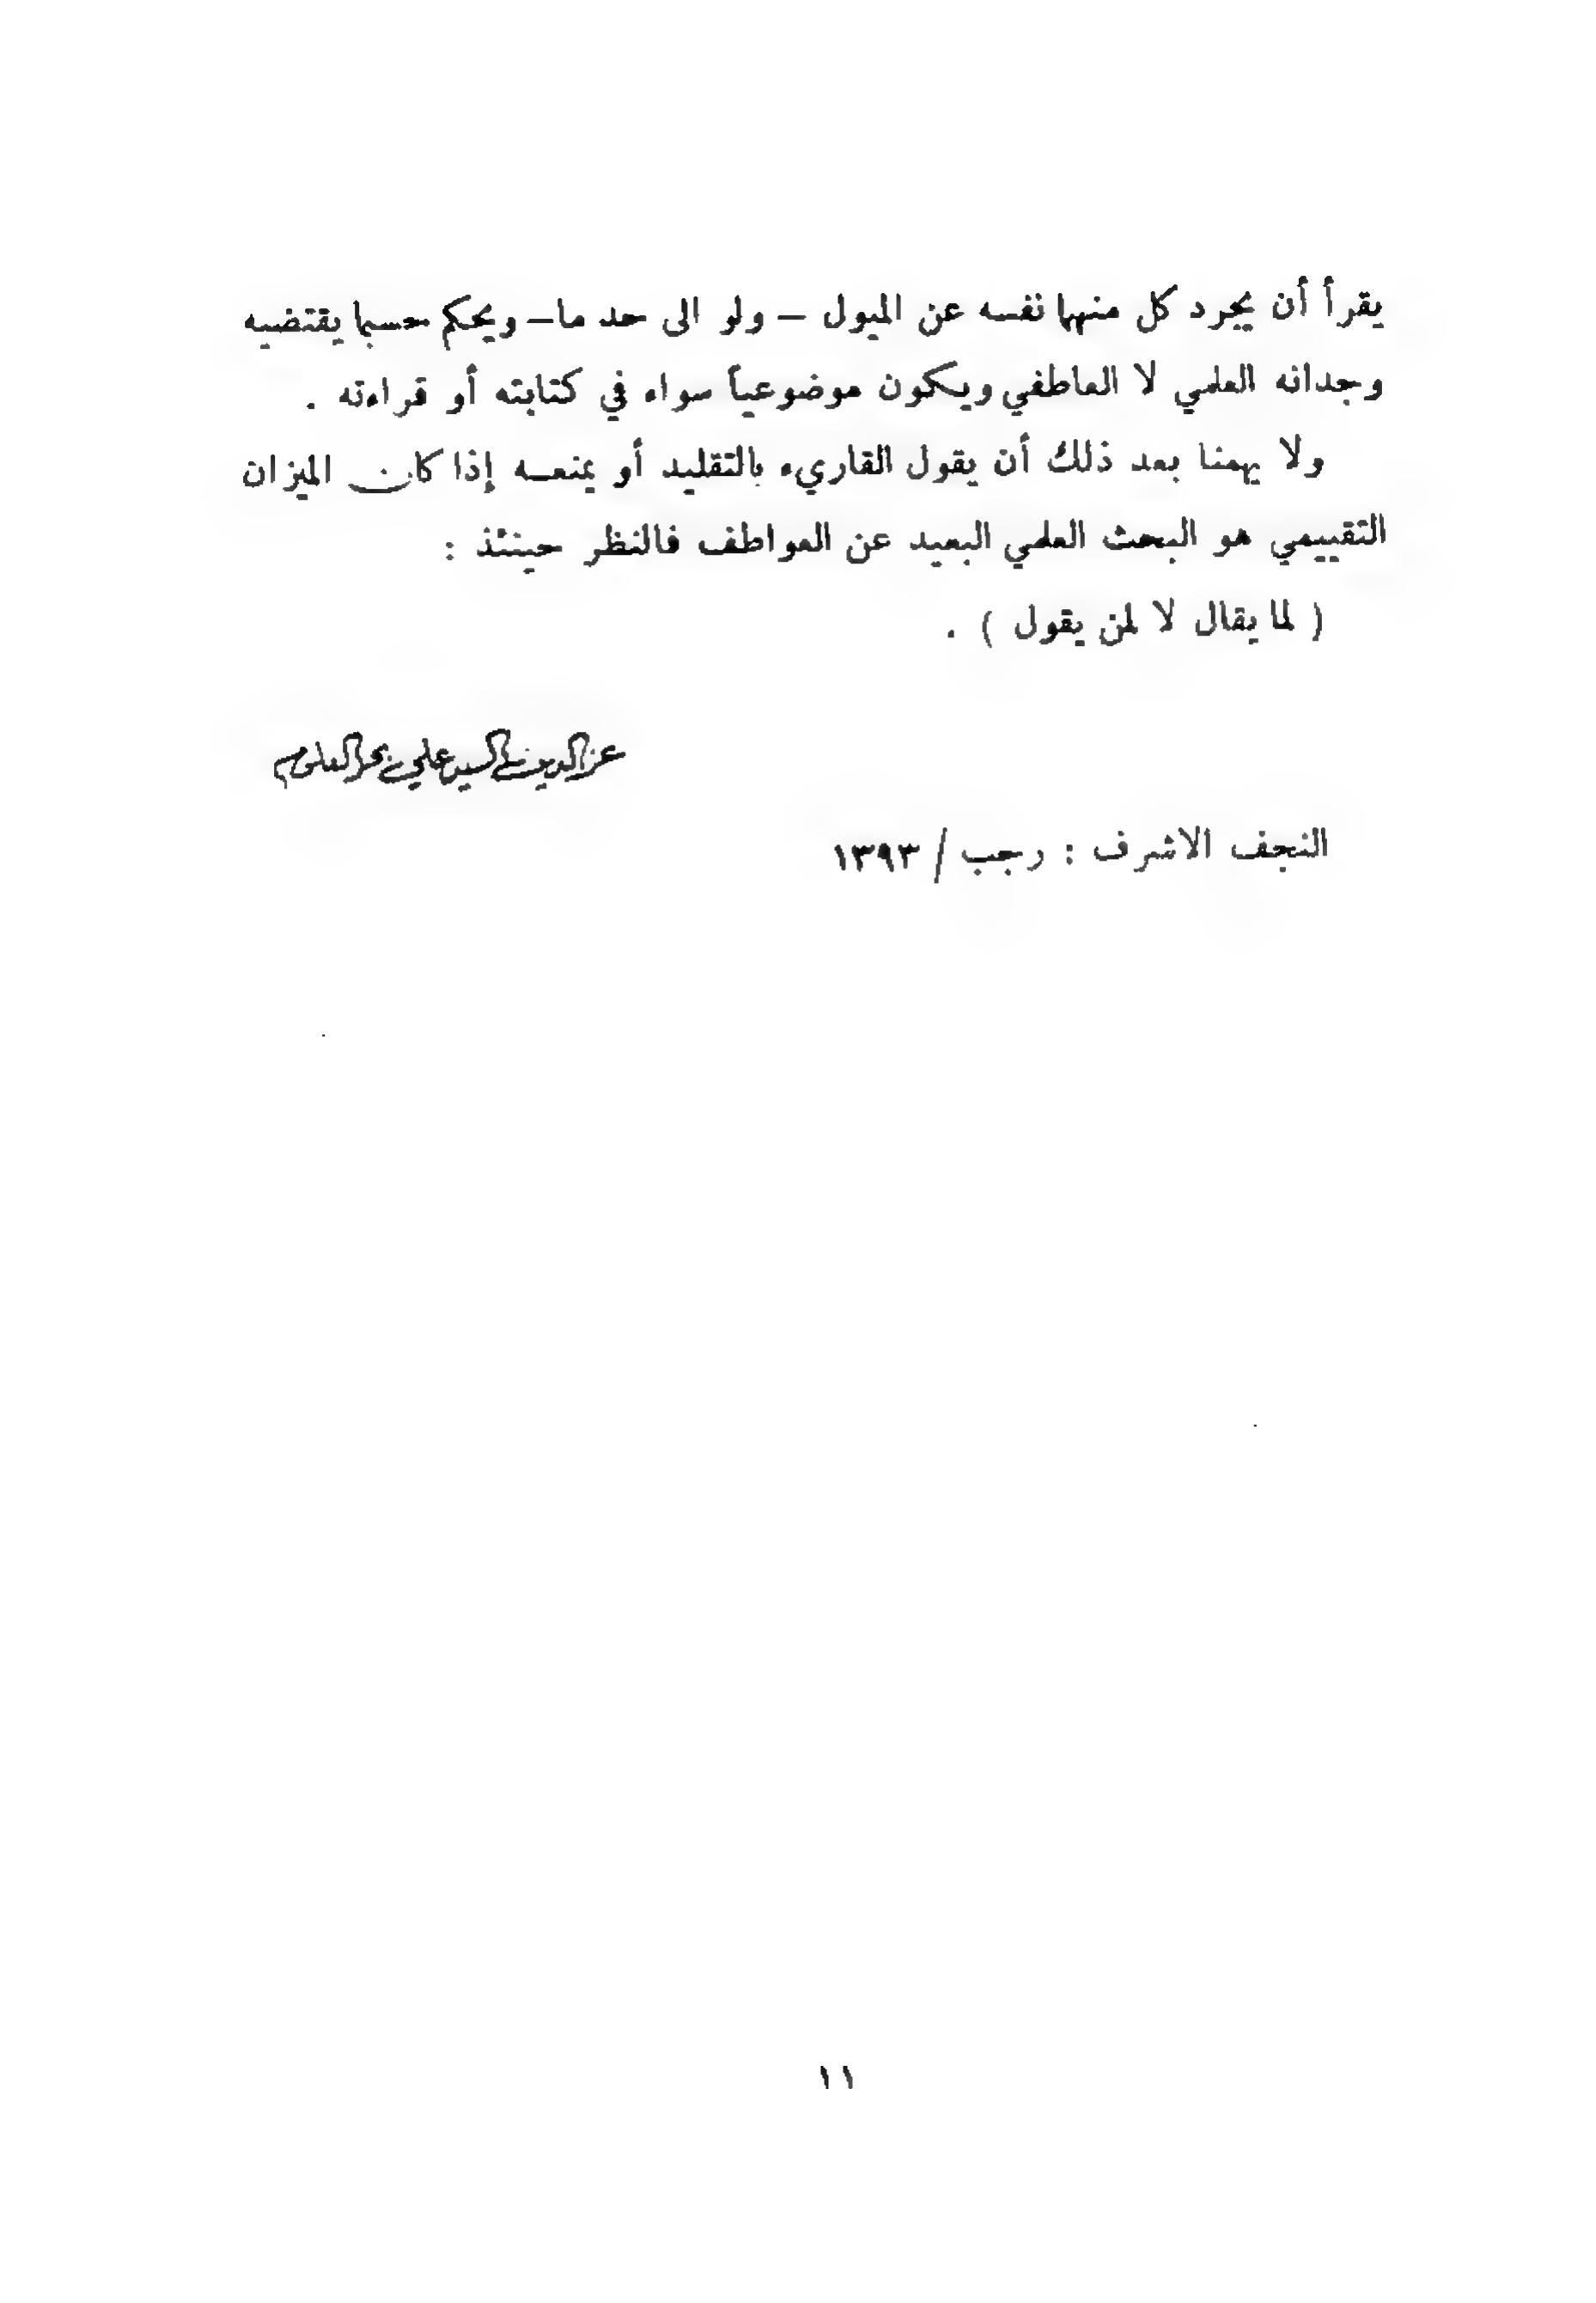 يقرأ أن يجرد كل منهما نفسه عن الميول – ولو الى حد ما– ويحكم حسبما يقتضيه
وجدانه العلمي لا العاطفي ويكون موضوعياً سواء في كتابته أو قراءته .
ولا يهمنا بعد ذلك أن يقول القاريء بالتقليد أو يمنعه إذا كان الميزان
التقييمي هو البحث العلمي البعيد عن العواطف فالنظر حينئذ :
( لما يقال لا لمن يقول ) .
عز الدين السيد علي بحر العلوم
النجف الاشرف : رجب / ١٣٩٣
١١